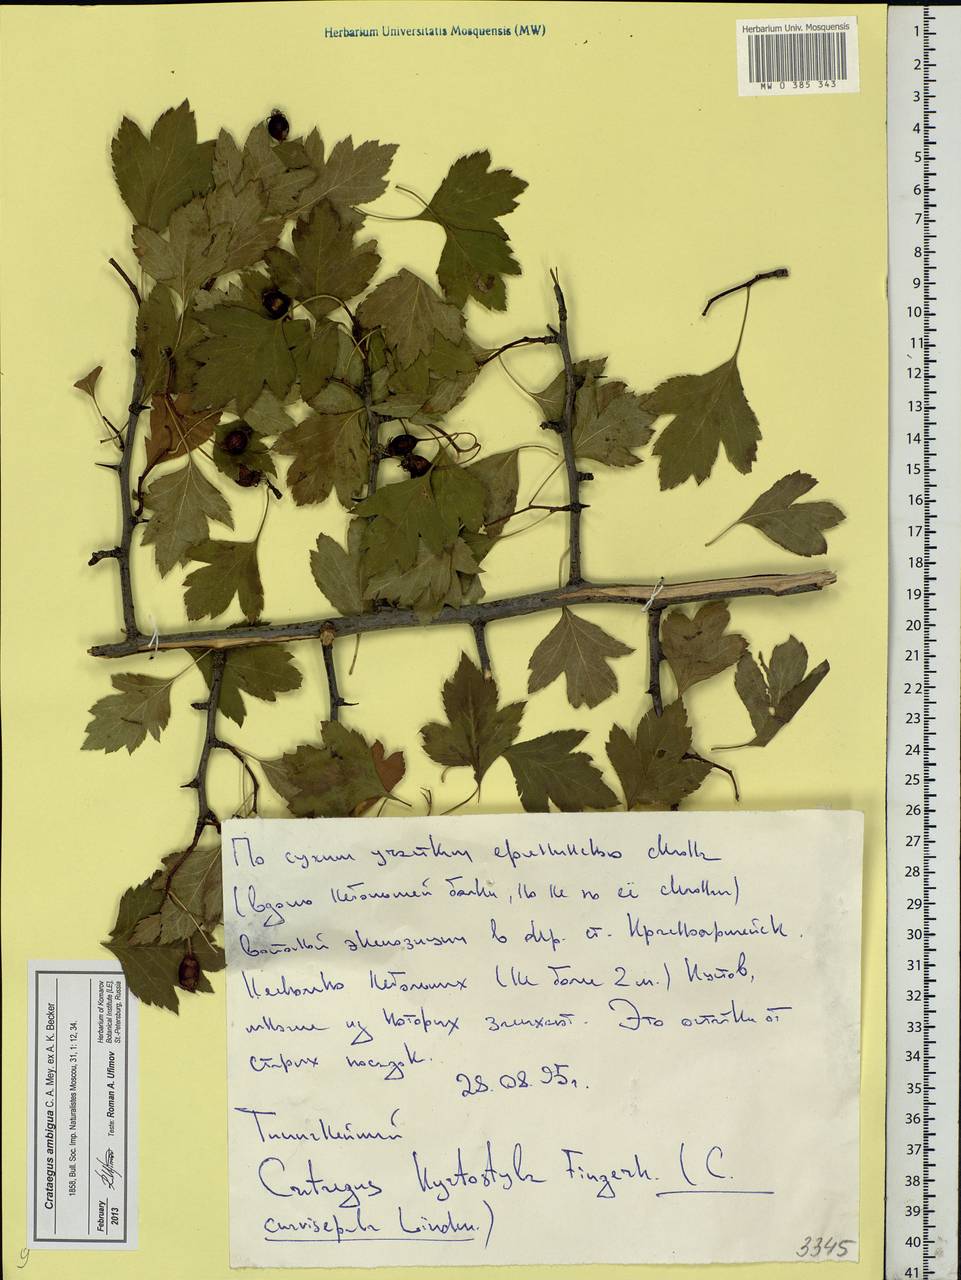 Herbarium Universitatis Mosquensis (MW)
Herbarium Univ. Mosquensis
MW 0 385 343
По сухим участкам склона
(вдоль небольшой балки, но не по её склонам)
экспозиции в окр. ст. Красноармейск.
Несколько небольших (не более 2 м.) кустов,
из которых засыхают. Это остатки от
старых посадок.
28.08.95г.
Типичнейший
Crataegus Kyrtostyla Fingerh. (C.
curvisepala Lindm.)
3345
Crataegus ambigua C. A. Mey. ex A. K. Becker
1858, Bull. Soc. Imp. Naturalistes Moscou, 31, 1: 12, 34.
Herbarium of Komarov
Botanical Institute [LE],
St.-Petersburg, Russia
February
2013
Teste: Roman A. Ufimov
9
1
2
3
4
5
6
7
8
9
10
11
12
13
14
15
16
17
18
19
20
21
22
23
24
25
26
27
28
29
30
31
32
33
34
35
36
37
38
39
40
41